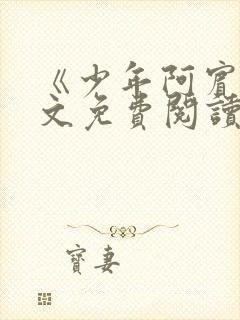 《少年阿賓
文免費閱讀
寶妻